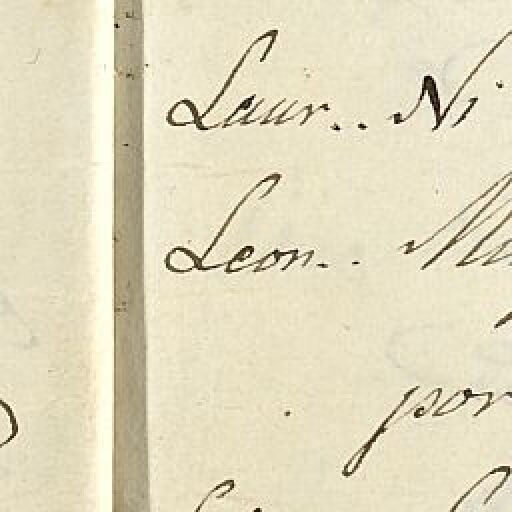 Laur.. Ni
Leon..
por